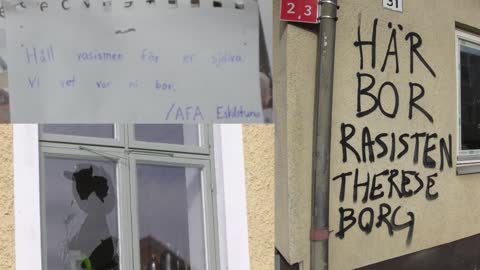 Håll rasismen för er själva.
Vi vet var ni bor.
/AFA Eskilstuna
2,3
31
HÄR
BOR
RASISTEN
THERESE
BORG